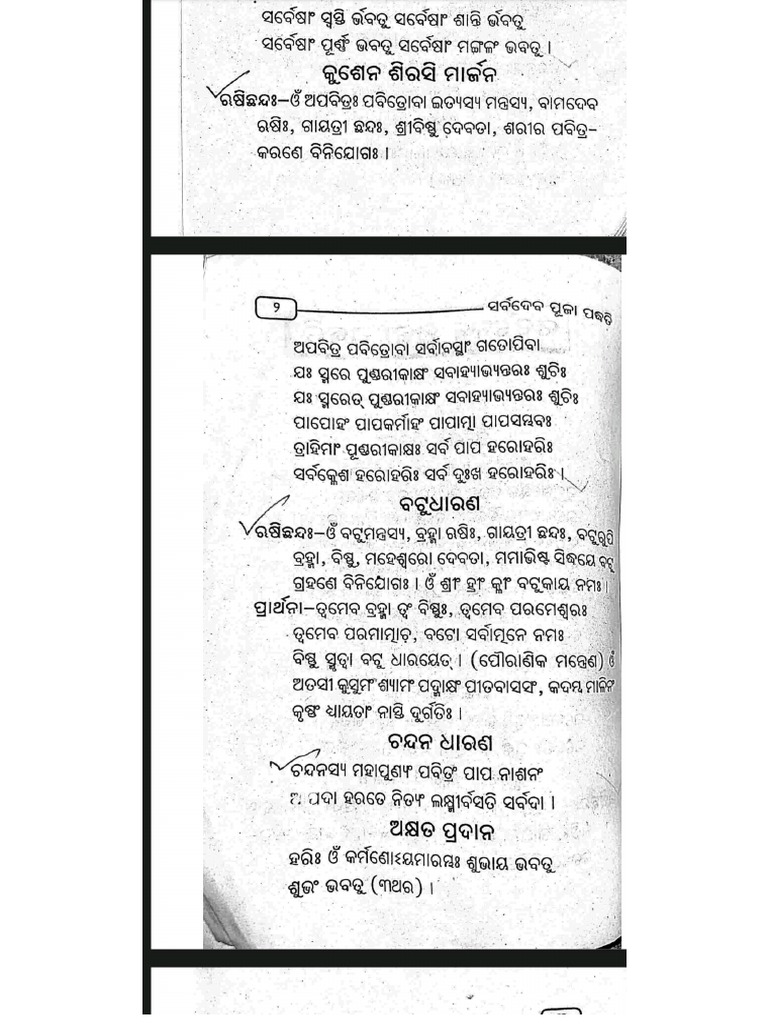 ସର୍ବେଷାଂ ସ୍ୱସ୍ତି ର୍ଭବତୁ ସର୍ବେଷାଂ ଶାନ୍ତି ର୍ଭବତୁ
ସର୍ବେଷାଂ ପୂର୍ଣ୍ଣଂ ଭବତୁ ସର୍ବେଷାଂ ମଙ୍ଗଳଂ ଭବତୁ ।
କୁଶେନ ଶିରସି ମାର୍ଜନ
ଋଷିଛନ୍ଦଃ–ଓଁ ଅପବିତ୍ରଃ ପବିତ୍ରୋବା ଇତ୍ୟସ୍ୟ ମନ୍ତ୍ରସ୍ୟ, ବାମଦେବ
ଋଷିଃ, ଗାୟତ୍ରୀ ଛନ୍ଦଃ, ଶ୍ରୀବିଷ୍ଣୁ ଦେବତା, ଶରୀର ପବିତ୍ର–
କରଣେ ବିନିଯୋଗଃ ।
୨ ସର୍ବଦେବ ପୂଜା ପଦ୍ଧତି
ଅପବିତ୍ର ପବିତ୍ରୋବା ସର୍ବାବସ୍ଥାଂ ଗତୋପିବା
ଯଃ ସ୍ମରେ ପୁଣ୍ଡରୀକାକ୍ଷଂ ସବାହ୍ୟାଭ୍ୟନ୍ତରଃ ଶୁଚିଃ
ଯଃ ସ୍ମରେତ୍ ପୁଣ୍ଡରୀକାକ୍ଷଂ ସବାହ୍ୟାଭ୍ୟନ୍ତରଃ ଶୁଚିଃ
ପାପୋହଂ ପାପକର୍ମାହଂ ପାପାତ୍ମା ପାପସମ୍ଭବଃ
ତ୍ରାହିମାଂ ପୂଣ୍ଡରୀକାକ୍ଷଃ ସର୍ବ ପାପ ହରୋହରିଃ
ସର୍ବକ୍ଳେଶ ହରୋହରିଃ ସର୍ବ ଦୁଃଖ ହରୋହରିଃ ।
ବଟୁଧାରଣ
ଋଷିଛନ୍ଦଃ–ଓଁ ବଟୁମନ୍ତ୍ରସ୍ୟ, ବ୍ରହ୍ମା ଋଷିଃ, ଗାୟତ୍ରୀ ଛନ୍ଦଃ, ବଟୁରୂପି
ବ୍ରହ୍ମା, ବିଷ୍ଣୁ, ମହେଶ୍ୱରୋ ଦେବତା, ମମାଭିଷ୍ଟ ସିଦ୍ଧୟେ ବଟୁ
ଗ୍ରହଣେ ବିନିଯୋଗଃ । ଓଁ ଶ୍ରୀଂ ହ୍ରୀଂ କ୍ଳୀଂ ବଟୁକାୟ ନମଃ ।
ପ୍ରାର୍ଥନା–ତ୍ୱମେବ ବ୍ରହ୍ମା ତ୍ୱଂ ବିଷ୍ଣୁଃ, ତ୍ୱମେବ ପରମେଶ୍ୱରଃ
ତ୍ୱମେବ ପରମାତ୍ମାଚ, ବଟୋ ସର୍ବାତ୍ମନେ ନମଃ
ବିଷ୍ଣୁ ସ୍ମୃତ୍ୱା ବଟୁ ଧାରୟେତ୍ । (ପୌରାଣିକ ମନ୍ତ୍ରେଣ) ଓଁ
ଅତସୀ କୁସୁମଂ ଶ୍ୟାମଂ ପଦ୍ମାକ୍ଷଂ ପୀତବାସସଂ, କଦମ୍ବ ମାଳିନଂ
କୃଷ୍ଣଂ ଧ୍ୟାୟତାଂ ନାସ୍ତି ଦୁର୍ଗତିଃ ।
ଚନ୍ଦନ ଧାରଣ
ଚନ୍ଦନସ୍ୟ ମହାପୁଣ୍ୟଂ ପବିତ୍ରଂ ପାପ ନାଶନଂ
ପଦା ହରତେ ନିତ୍ୟଂ ଲକ୍ଷ୍ମୀର୍ବସତି ସର୍ବଦା ।
ଅକ୍ଷତ ପ୍ରଦାନ
ହରିଃ ଓଁ କର୍ମଣୋଽୟମାରମ୍ଭଃ ଶୁଭାୟ ଭବତୁ
ଶୁଭଂ ଭବତୁ (୩ଥର) ।